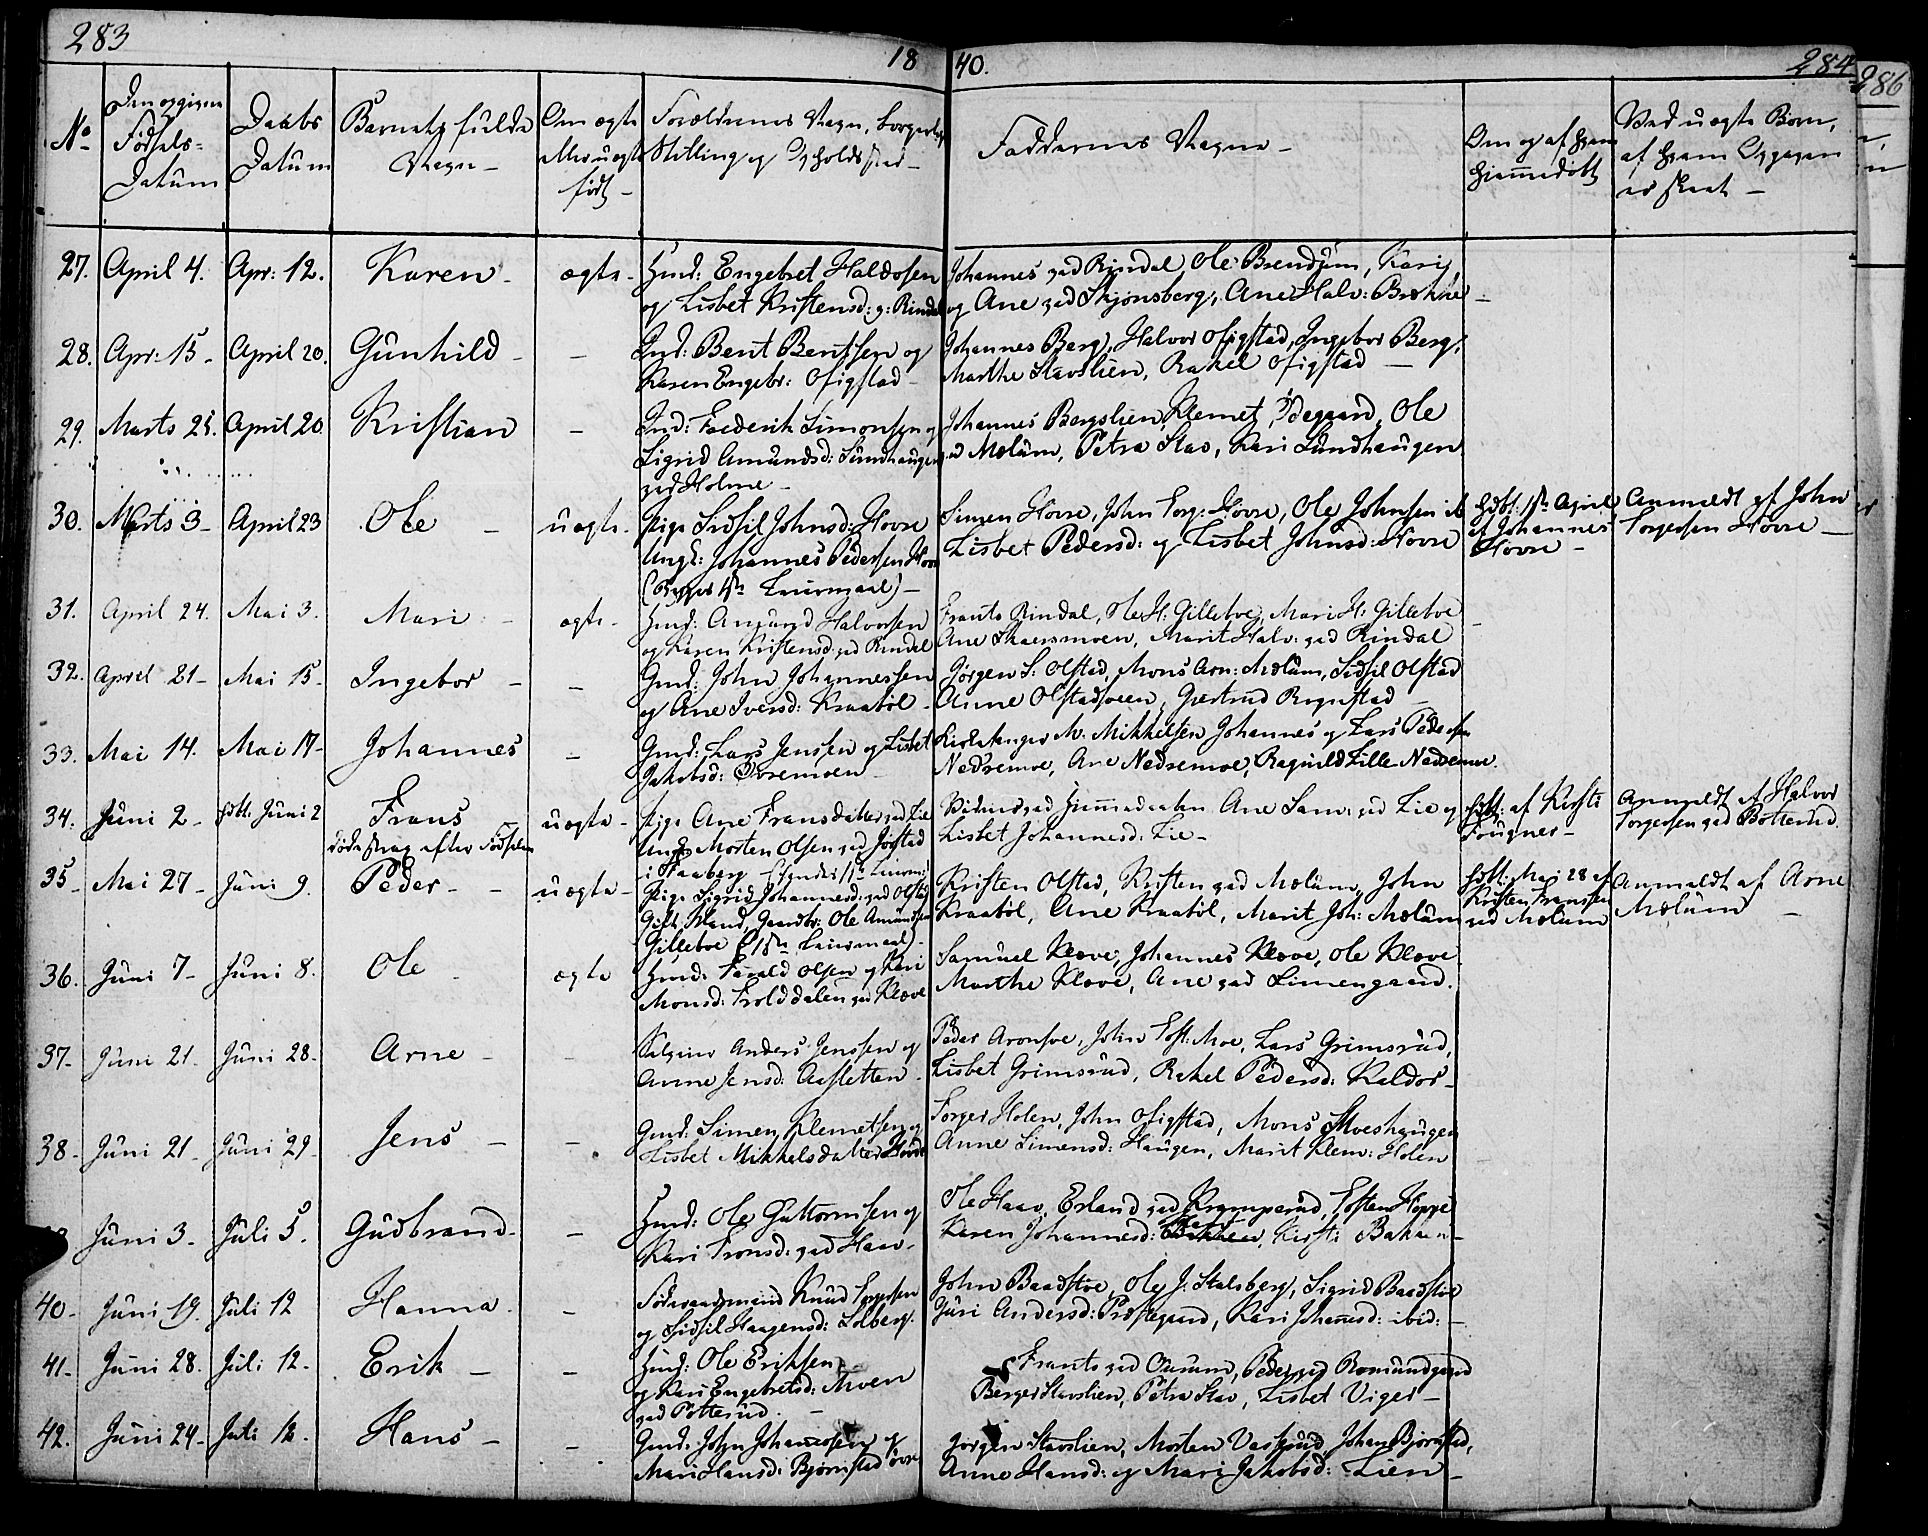 283
18 40.
284
286
No
Den opgivne Fødsels- Datum
Daabs Datum
Barnets fulde Navn -
Om ægte eller uægte født -
Forældrenes Navn, borgerlig Stilling og Opholdssted -
Faddernes Navne -
Om og af hvem hjemmedøbt
Ved uægte Børn, af hvem Opgaven er skeet -
27. April 4. Apr: 12. Karen - ægte -
Hmd: Engebret Haldosen
og Lisbet Kristensd: g: Rindal
Johannes gad Rindal, Ole Brendjum, Kari
og Ane gad Skjønsberg, Ane Halv: Brække -
28. Apr. 15 - April 20. Gunhild - -
Gmd: Bent Bentsen og
Karen Engebr: Ofigstad -
Johannes Berg, Halvor Ofigstad, Ingebor Berg,
Marthe Stavslien, Rakel Ofigstad -
29. Marts 25. April 20. Kristian -
Ind: Frederik Simonsen og
Sigrid Amundsd: Sundhaugen
gad Holme -
Johannes Bergslien, Klemet Ødegaard, Ole
gad Mælum, Petra Stav, Kari Sundhaugen
30. Marts 3 - April 23 Ole - uægte -
Pige Sidsil Johnsd: Hovre
Ungk: Johannes Pedersen Hovre
(Begges 1ste Leiermaal) -
Simen Hovre, John Torg: Hovre, Ole Johnsen ib
Lisbet Pedersd: og Lisbet Johnsd: Hovre
Hdbt: 1ste April
af Johannes
Hovre -
Anmeldt af John
Torgersen Hovre -
31. April 24. Mai 3. Mari - ægte -
Hmd: Amund Halvorsen
og Karen Kristensd: gad Rindal
Frants Rindal, Ole H: Gilleboe, Mari H: Gilleboe
Ane Skaersmoen, Marit Halv: gad Rindal
32. April 21 - Mai 15 - Ingebor - -
Gmd: John Johannessen
og Ane Iversd: Kraabøl -
Jørgen S: Olstad, Mons Arn: Mælum, Sidsil Olstad
Anne Olstadsveen, Gjertrud Rognstad -
33. Mai 14. Mai 17 - Johannes -
Gmd: Lars Jensen og Lisbet
Jakobsd: Øvremoen -
Kirkesanger M. Mikkelsen Johannes og Lars Pedersen
Nedremoe, Ane Nedremoe, Ragnild Lille Nedremoe.
34. Juni 2 - Hdbt. Juni 2 Frans
døde strax efter Fødselen
uægte -
Pige Ane Fransdatter gad Lie
Ungk. Morten Olsen gad Jøstad
i Faaberg
Vidner ved Hjemmedaaben Ane Sam: gad Lie og
Lisbet Johannesd: Lie -
Hdbt: af Kirsti
Fougner -
Anmeldt af Halvor
Torgersen gad Botterud.
35 - Mai 27 - Juni 9. Peder - - uægte -
Pige Sigrid Johannesd: gad Olstad
Gift Mand, Gaardbr: Ole Amundsen
Gilleboe (1ste Leiermaal) -
Kristen Olstad, Kristen gad Mælum, John
Kraabøl, Ane Kraabøl, Marit Joh: Mælum
Hdbt: Mai 28 af
Kristen Franssen
gad Mælum
Anmeldt af Arne
Mælum -
36. Juni 7 - Juni 8. Ole - ægte
Hmd: Harald Olsen og Kari
Monsd: Trolddalen gad Kløve
Samuel Kløve, Johannes Kløve, Ole Kløve
Marthe Kløve, Ane gad Simengaard.
37 - Juni 21 - Juni 28 - Arne - -
Selveier Anders Jenssen og
Anne Jensd: Aasletten -
Peder Aronsve, John Tost: Moe, Lars Grimsrud,
Lisbet Grimsrud, Rakel Pedersd: Kaldor -
38 - Juni 21 - Juni 29 - Jens - -
Gmd: Simen Klemetsen og
Lisbet Mikkelsdatter Hovde
Torger Holen, John Ofigstad, Mons Moeshaugen
Anne Simensd: Haugen, Marit Klem: Holen
Juni 3 - Juli 5. Gudbrand - -
Hmd: Ole Guttormsen og
Kari Tronsd: gad Haav -
Ole Haav, Erland gad Kramperud, Tosten Hoppe
Karen Johannesd: Bakken, Kirsti Bakken -
40 - Juni 19. Juli 12 Hanna - -
Føderaadsmand Knud Torgersen
og Sidsil Haagensd: Solberg.
John Baadstoe, Ole J. Stalsberg, Sigrid Baadstoe
Guri Andersd: Præstegaard, Kari Johanesd: ibid: -
41 - Juni 28. Juli 12 - Erik - -
Hmd: Ole Eriksen
og Kari Engebretsd: Moen
gad Potterud. -
Frants gad Aurum, Peder gad Romundgaard
Berger Stavslien, Petra Stav, Lisbet Viger -
42. Juni 24 - Juli 12 - Hans - -
Gmd: John Johannesen og
Mari Hansd: Bjørnstad øvre
Jørgen Stavslien, Morten Vasrud, Johan Bjørnstad,
Anne Hansd: og Mari Jakobsd: Lien -